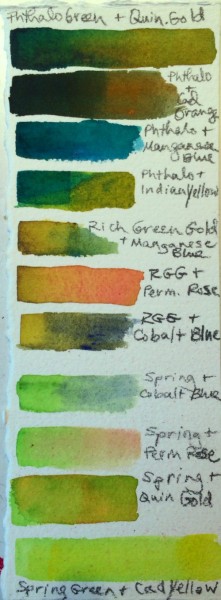 Phthalo Green + Quin. Gold
Phthalo
+
Cad
Orange
Phthalo +
Manganese
Blue
Phthalo +
Indian Yellow
Rich Green Gold
+ Manganese
Blue
RGG +
Perm. Rose
RGG +
Cobalt Blue
Spring +
Cobalt Blue
Spring +
Perm Rose
Spring +
Quin Gold
Spring Green + Cad Yellow